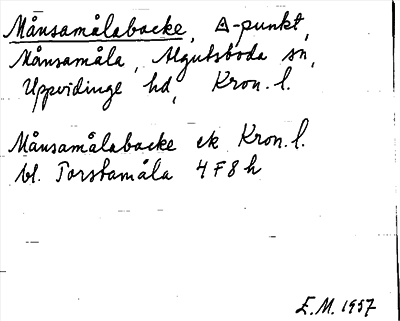 Månsamålabacke, △-punkt,
Månsamåla, Algutsboda sn,
Uppvidinge hd, Kron. l.
Månsamålabacke ek Kron. l.
bl. Torstamåla 4 F 8 h
E.M. 1957